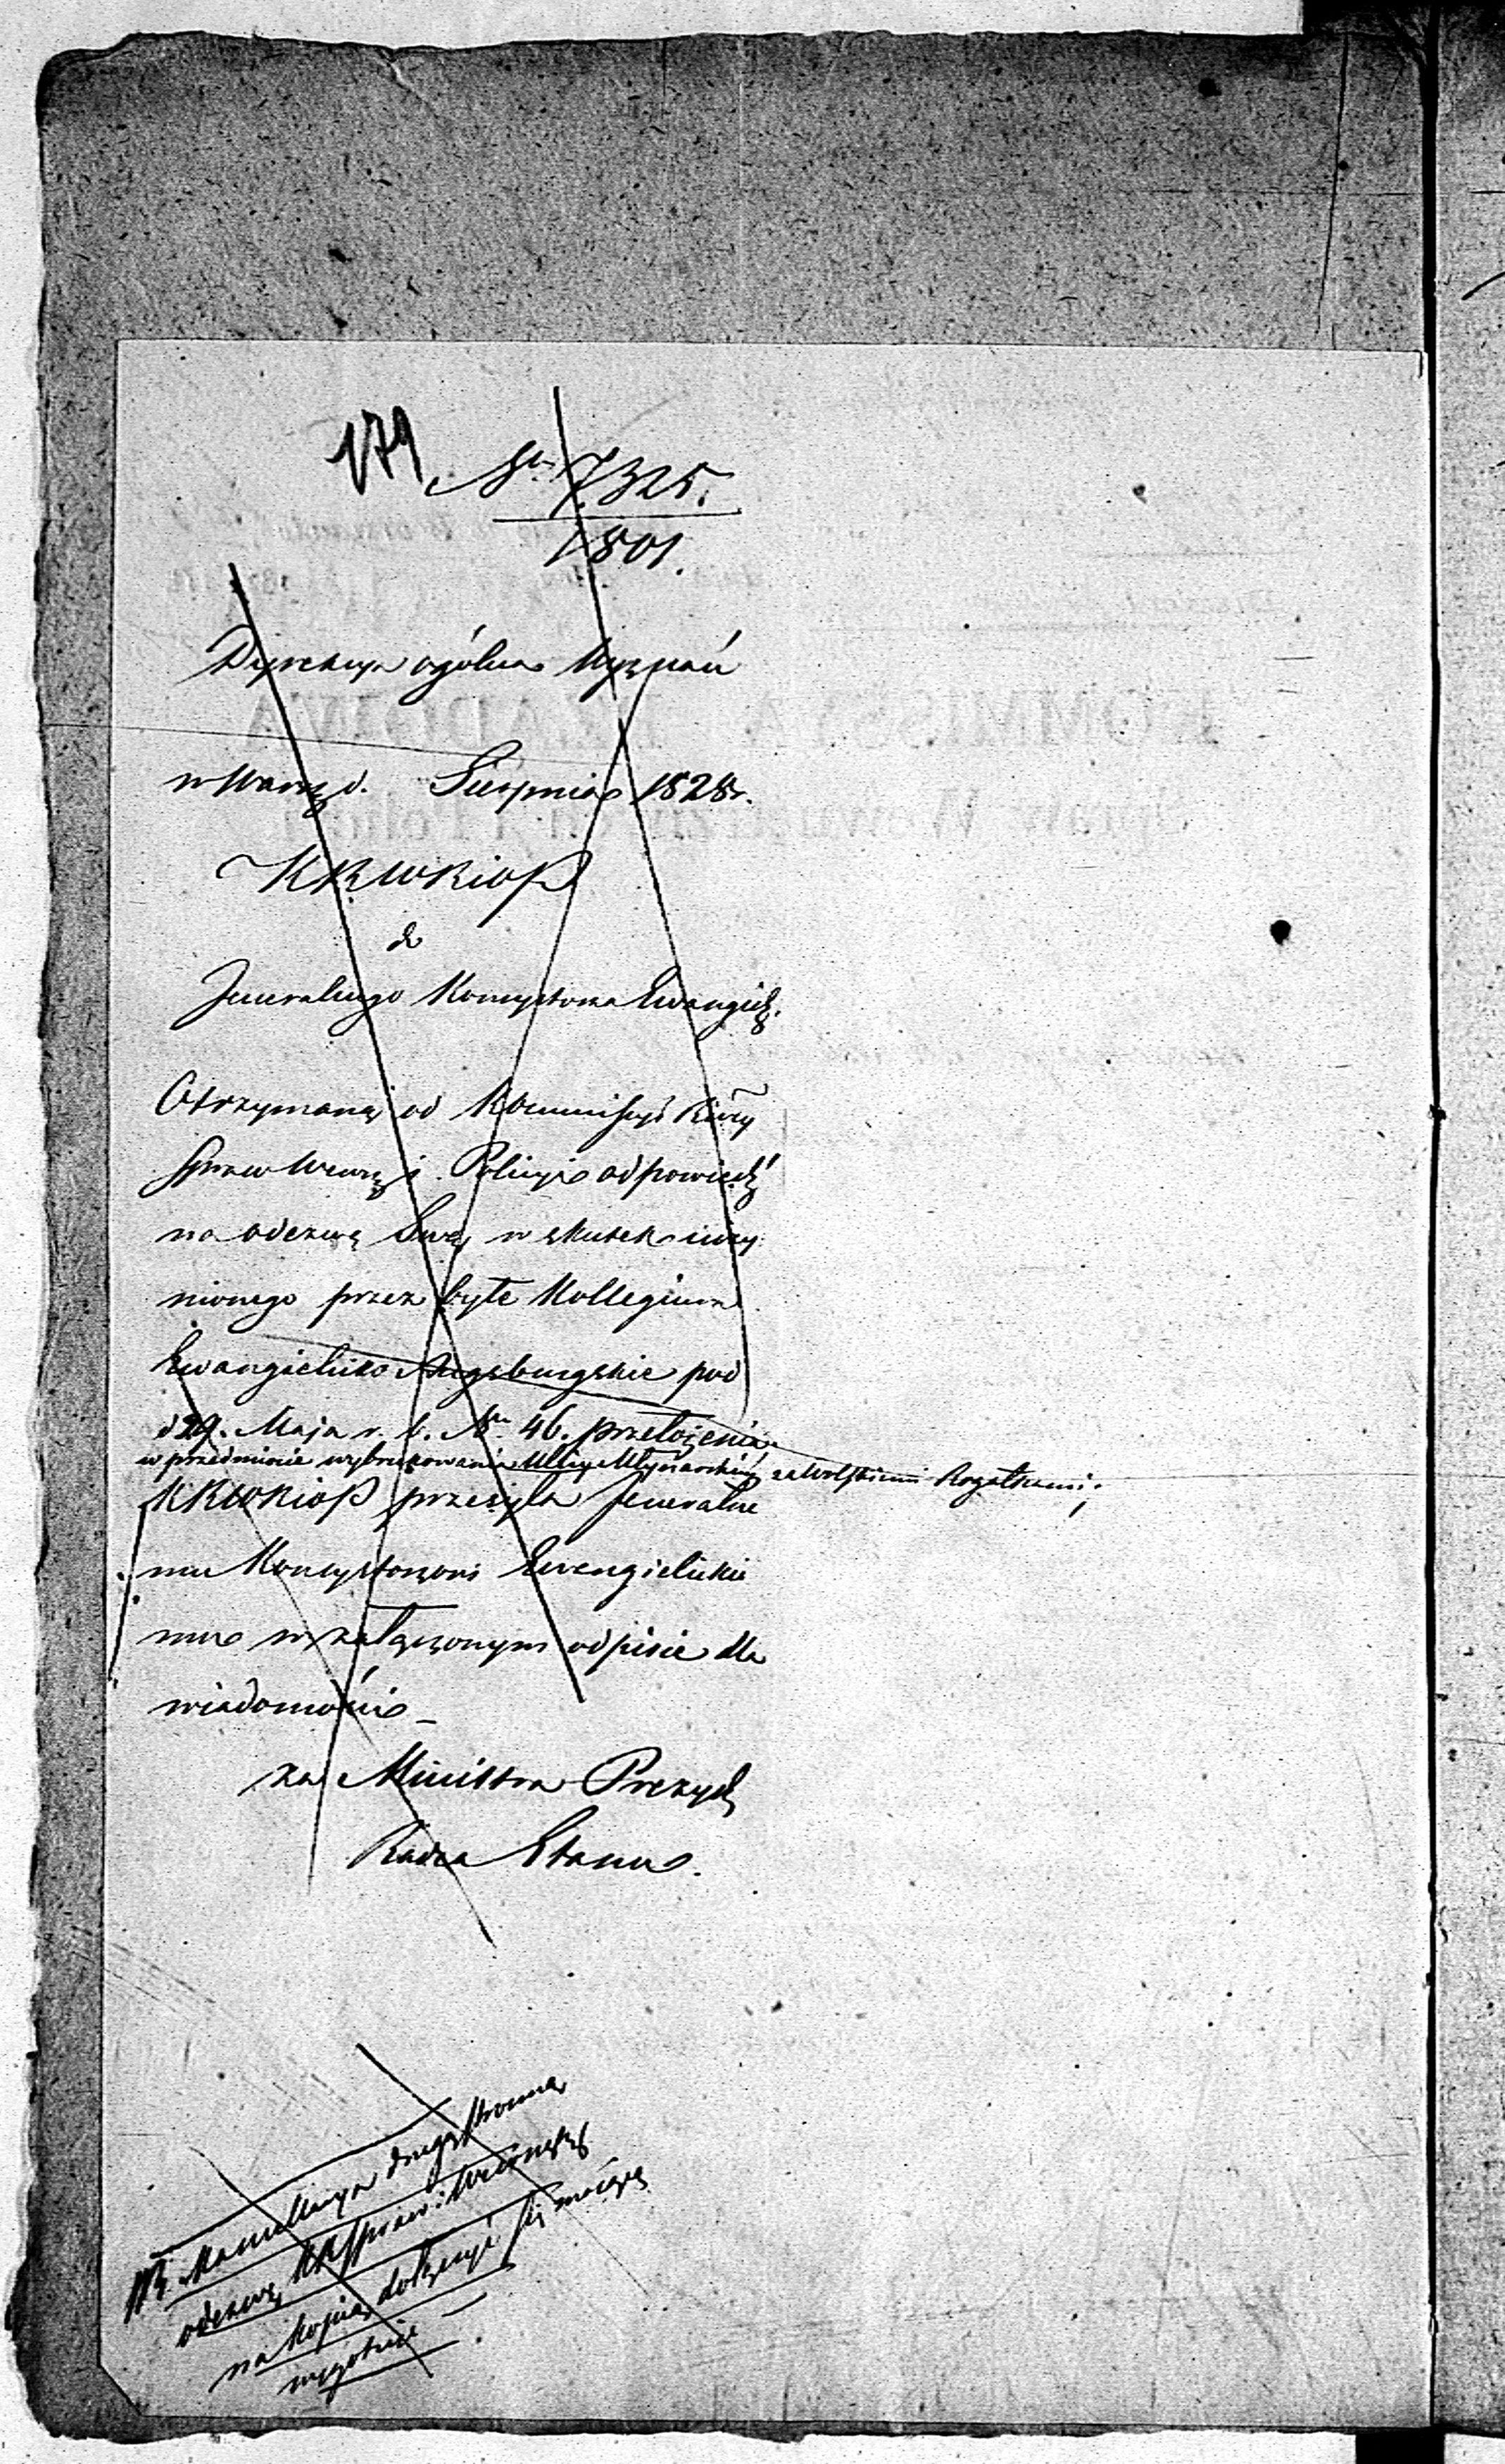 179
Nr. 7325.
1801.
Dyrekcya ogólna Wyznań
w Warsz. d. Sierpnia 1828 r.
KRWRiOP
do
Jeneralnego Konsystorza Ewangiel.
Otrzymaną od Kommissyi Rząy
Spraw Wewn. i Policyi odpowiedź
na odezwę Swą w skutek uczy
nionego przez byłe Kollegium
Ewangielicko Augsburgskie pod
d 29. Maja r. b. Nr. 46. przełożenia
w przedmiocie wybrukowania Ulicy Młynarskiéj za Wolskiemi Rogatkami;
KRWRiOP przesyła Jeneralne
mu Konsystorzowi Ewangielickie
mu w załączonym odpisie dla
wiadomości –
za Ministra Prezyd.
Radca Stanu.
NB. Kancellarya drugą stronną
odezwę KRSpraw: Wewnętrz
na kopią dołączyć się mającą
wygotuje